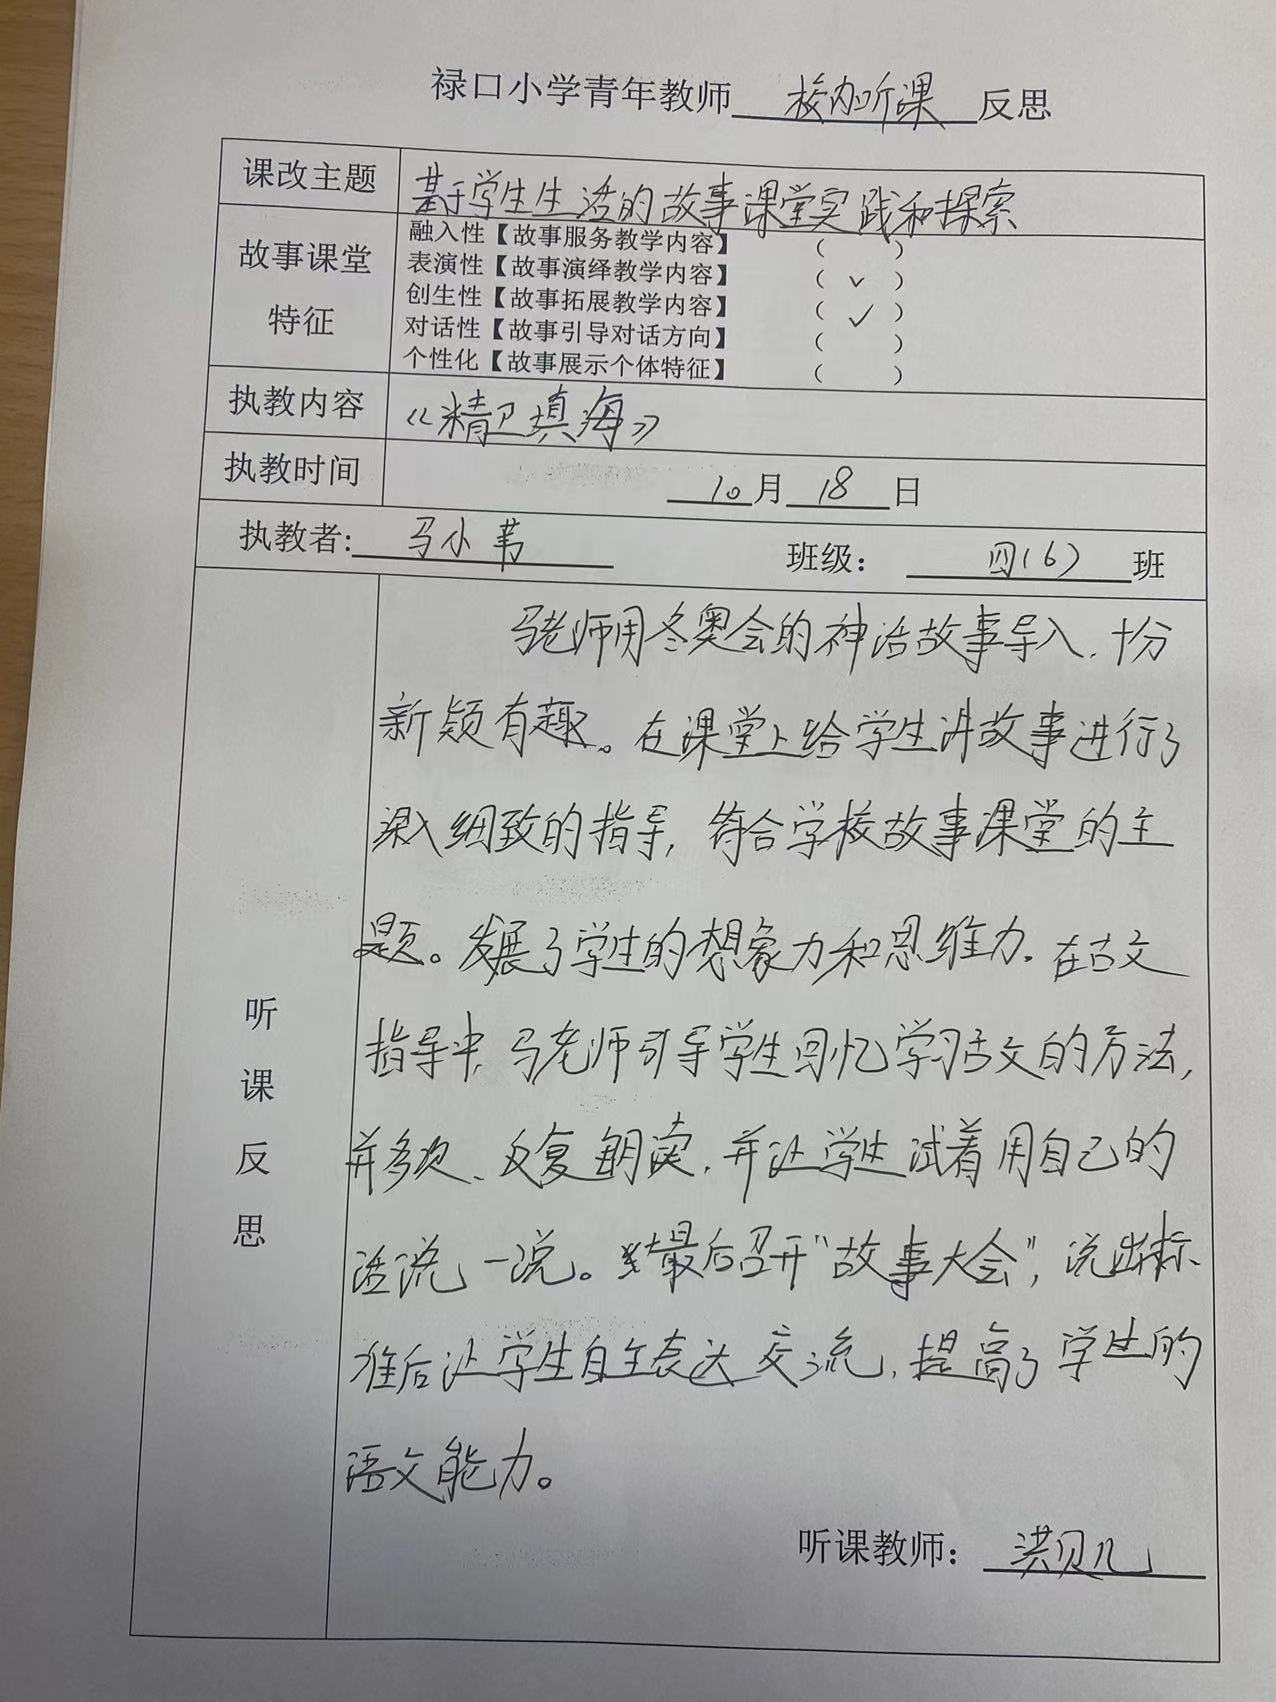 禄口小学青年教师 校内听课 反思
课改主题 基于学生生活的故事课堂实践和探索
故事课堂特征
融入性【故事服务教学内容】 （ ）
表演性【故事演绎教学内容】 （ ✓ ）
创生性【故事拓展教学内容】 （ ✓ ）
对话性【故事引导对话方向】 （ ）
个性化【故事展示个体特征】 （ ）
执教内容 《精卫填海》
执教时间 10月18日
执教者: 马小苇 班级： 四(6) 班
听课反思
马老师用冬奥会的神话故事导入，十分
新颖有趣。在课堂上给学生讲故事进行了
深入细致的指导，符合学校故事课堂的主
题。发展了学生的想象力和思维力。在古文
指导中，马老师引导学生回忆学习古文的方法，
并多次、反复朗读，并让学生试着用自己的
话说一说。最后召开“故事大会”，说出标
准后让学生自主表达交流，提高了学生的
语文能力。
听课教师： 洪贝儿